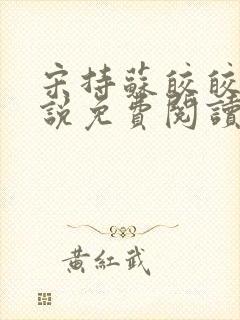 宋持蘇皎皎
說免費閱讀
黃紅武